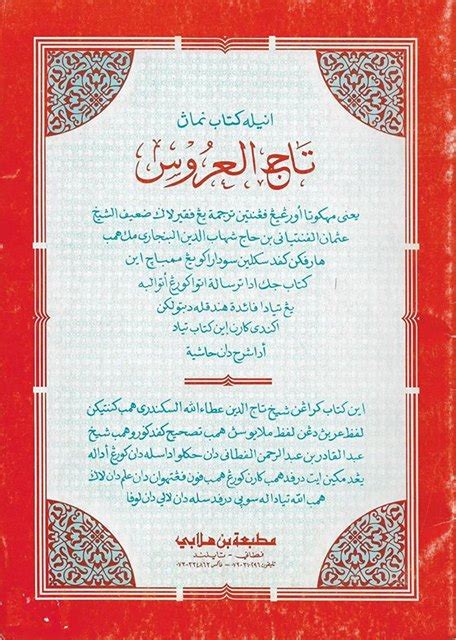 انيله كتاب نمان
تاج العروس
يعنى مهكوتا أورڠيڠ فڠنتين ترجمة يڠ فقير لاݢ ضعيف الشيخ
عثمان الفنتياني بن حاج شهاب الدين البنجاري مك همب
هارفكن كفد سكلين سودارا كو يڠ ممباچ اين
كتاب جك اد ترسالة اتوا كورڠ أتواله
يڠ تيادا فائدة هندقله دبتولكن
اكندى كارن اين كتاب تياد
أد شرح دان حاشية
اين كتاب كراڠن شيخ تاج الدين عطاء الله السكندرى همب كنتيكن
لفظ عربڽ دڠن لفظ ملايو سڽ همب تصحيح كفد كورو همب شيخ
عبد القادر بن عبد الرحمن الفطاني دان جكلو اد سله دان كورڠ أداله
يڠد مكين ايت درفد همب كارن كورڠ همب فون فڠتهوان دان علم دان لاݢ
همب الله تياد اله سوڽي درفد سله دان لالي دان لوفا
مطبعة بن هلابي
فطاني - تايلند